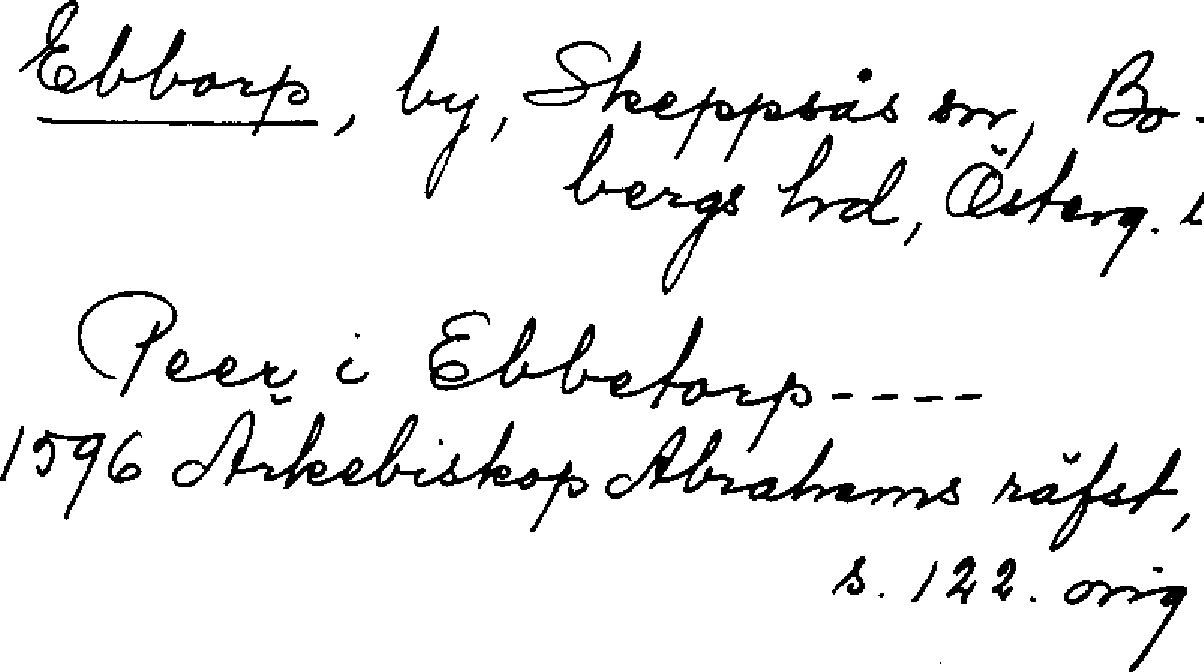 Ebborp, by, Skeppsås sn, Bo-
bergs hrd, Österg. l
Peer i Ebbetorp----
1596 Ärkebiskop Abrahams räfst,
s. 122. orig